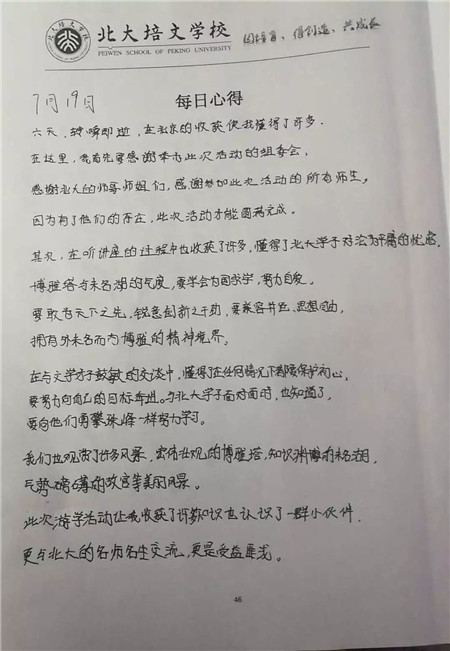 北大培文学校
PEIWEN SCHOOL OF PEKING UNIVERSITY
因培育、得创造、共成长
7月19日
每日心得
六天，转瞬即逝，在北京的收获使我懂得了许多.
在这里，我首先要感谢本次此次活动的组委会，
感谢北大的师哥师姐们，感谢参加此次活动的所有师生，
因为有了他们的存在，此次活动才能圆满完成。
其次，在听讲座的过程中也收获了许多，懂得了北大学子对平庸的忧虑，
博雅塔与未名湖的气度，要学会为国求学，努力自爱。
要敢为天下之先，锐意创新之手劲，要兼容并包、思想自由，
拥有外未名而内博雅的精神境界。
在与文学才子敖敏的交谈中，懂得了在任何情况下都要保护初心，
要努力向自己的目标奔进。与北大学子面对面时，也知道了，
要向他们勇攀珠峰一样努力学习。
我们也观赏了许多风景，宏伟壮观的博雅塔，知识渊博的未名湖，
气势磅礴的故宫等美的风景。
此次游学活动让我收获了许多知识也认识了一群小伙伴.
更与北大的名师名生交流，更是受益匪浅。
46